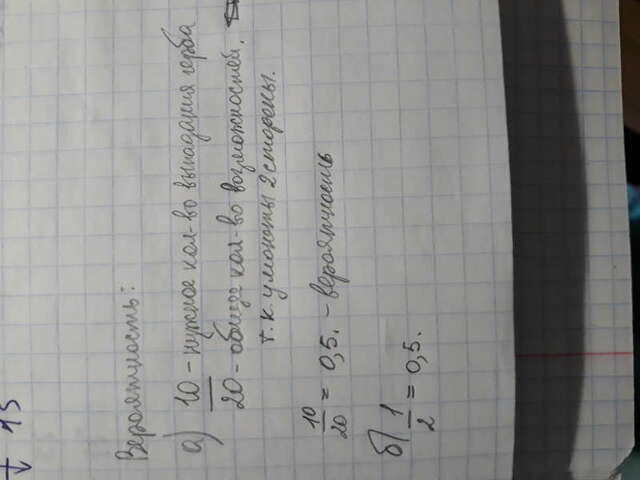 ↓ 15
Вероятность:
а) 10 - нужное кол-во выпадания герба
20 - общее кол-во возможностей,
т.к. у монеты 2 стороны.
10/20 = 0,5. - вероятность
б) 1/2 = 0,5.